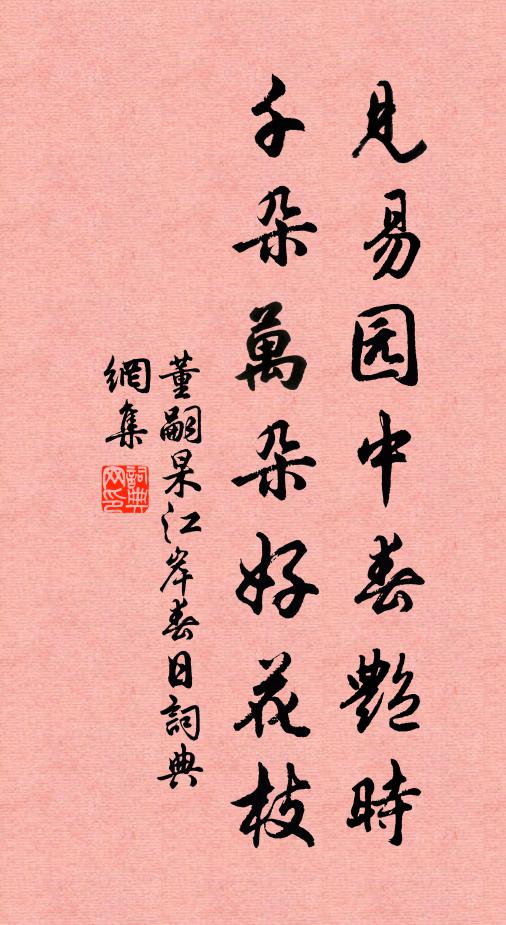 见易园中春艷時
千朵萬朵好花枝
董嗣杲江岸春日詞典
網集
詞典
网印